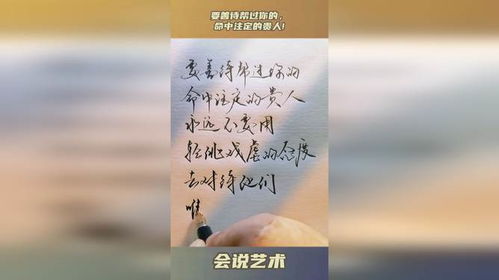 要善待帮过你的，
命中注定的贵人!
要善待帮过你的
命中注定的贵人
永远不要用
轻挑戏虐的态度
去对待他们
唯
会说艺术